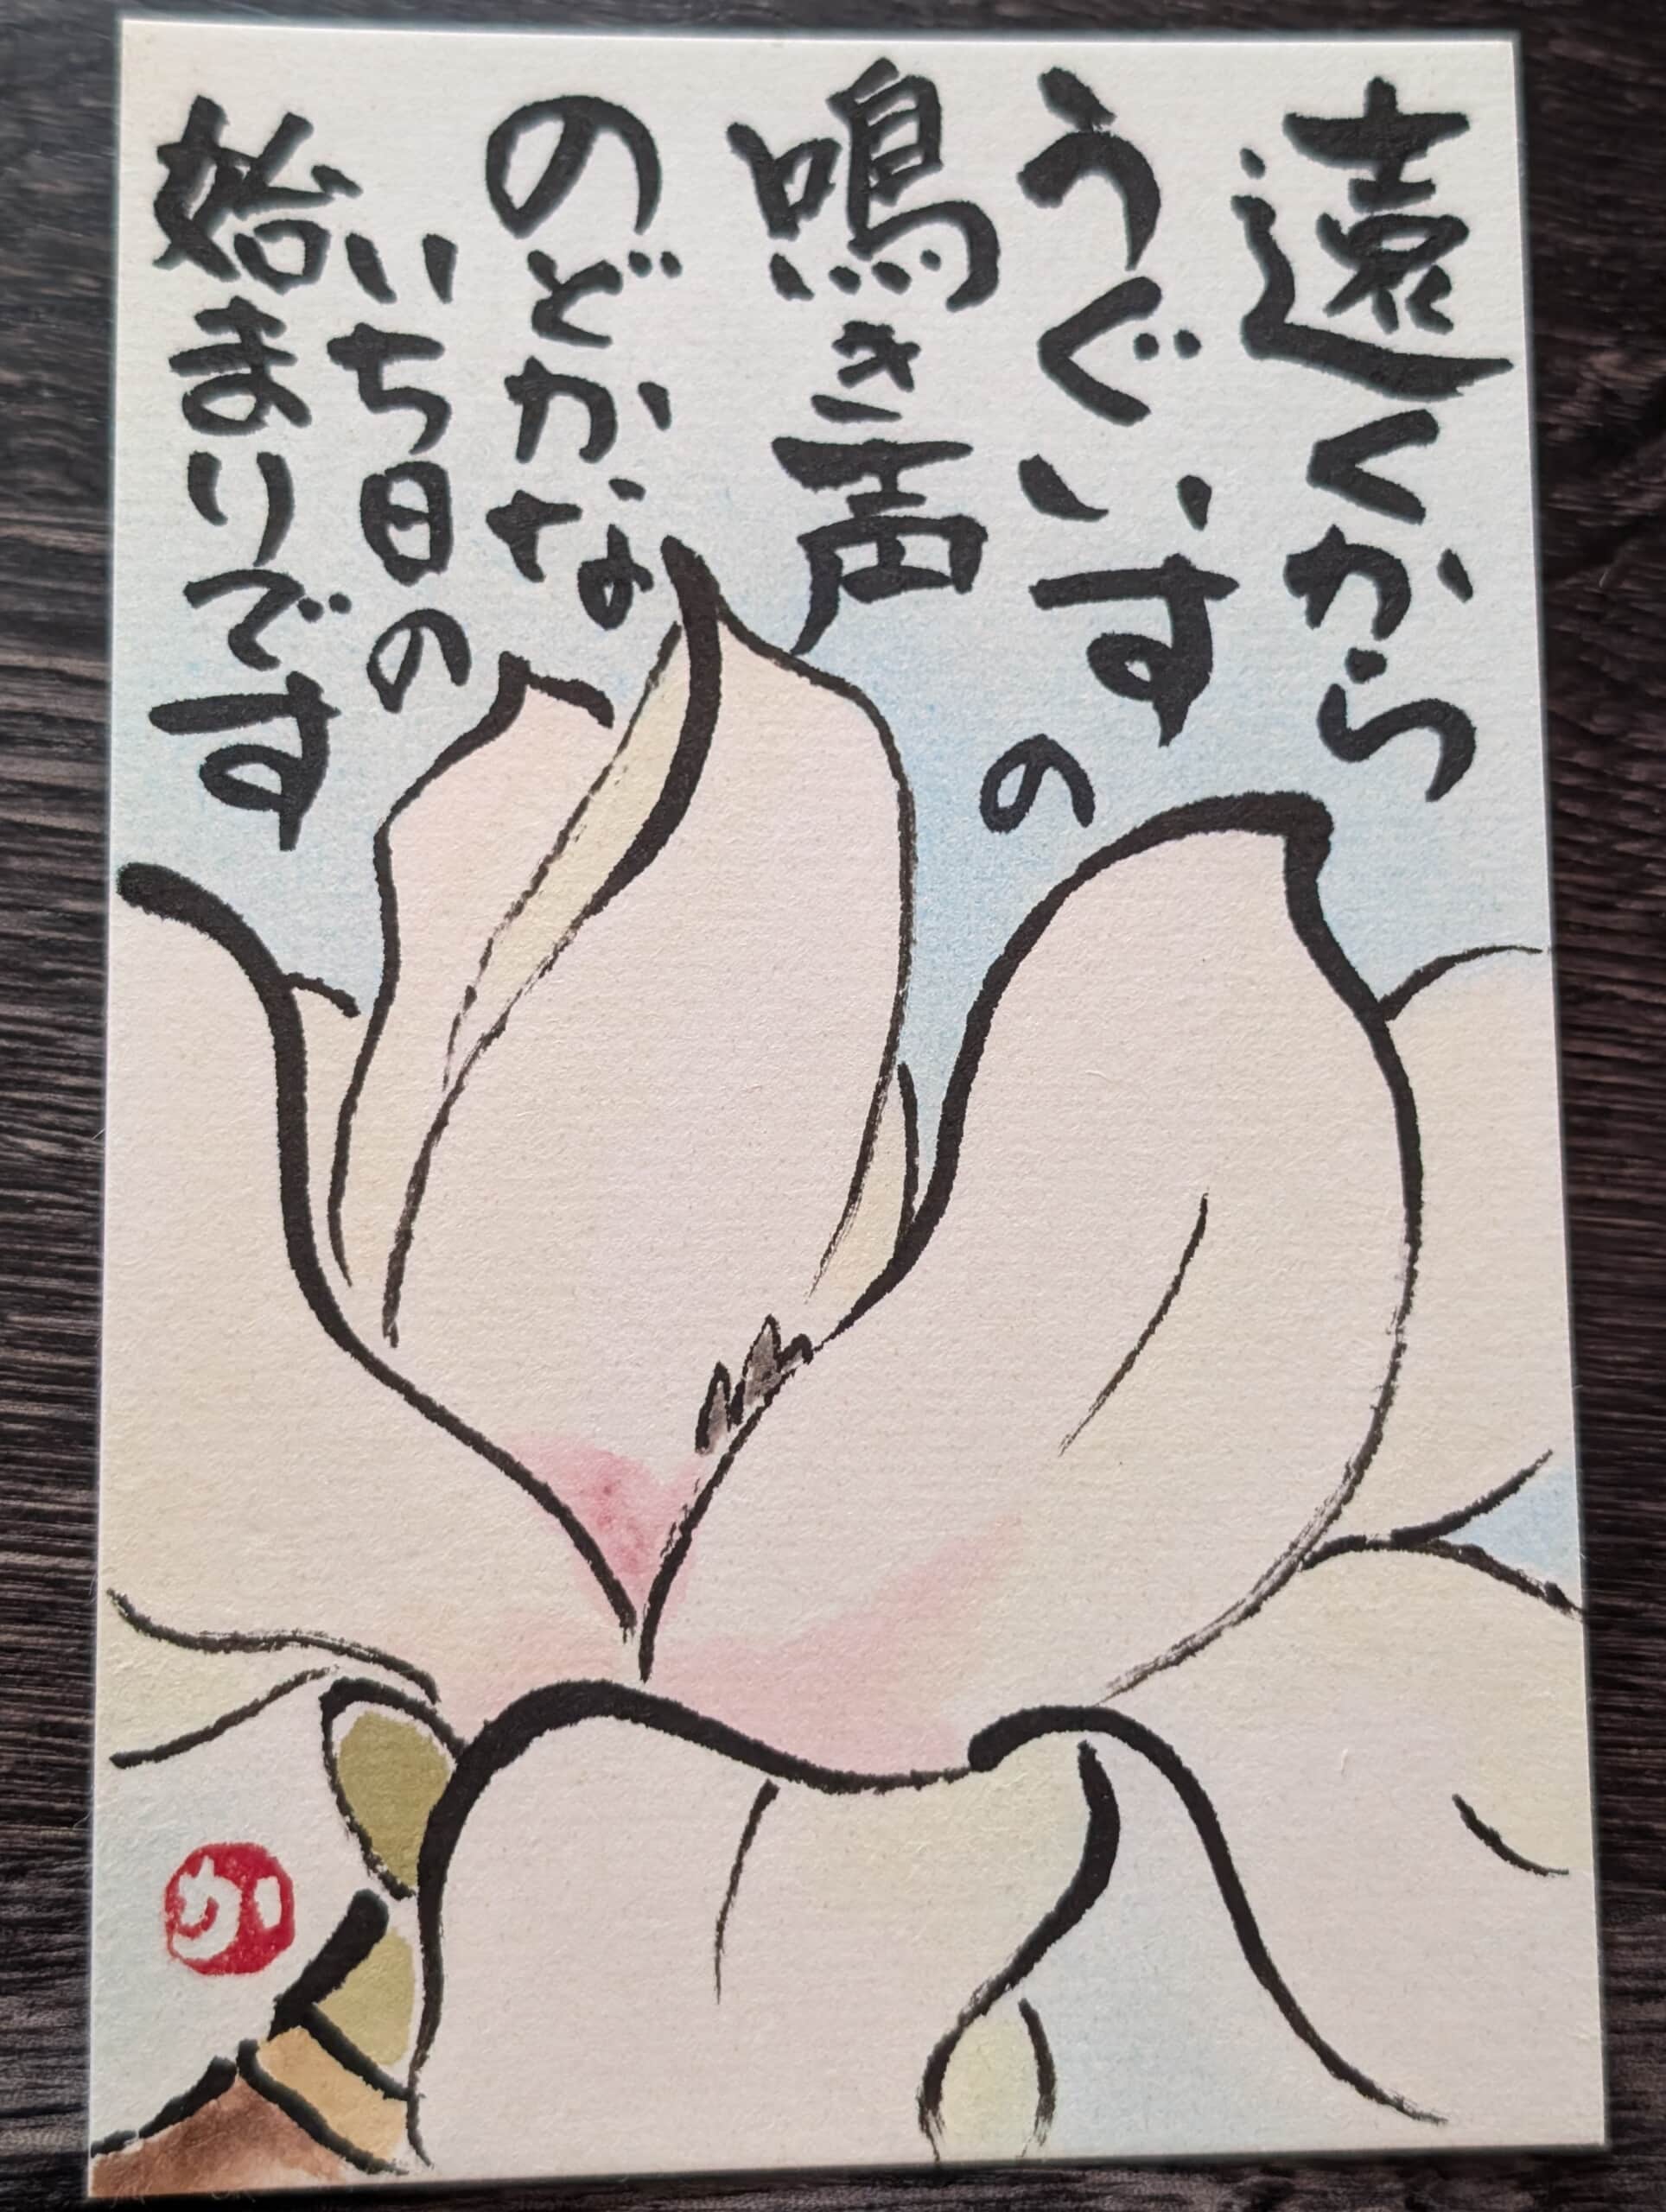 遠くから
うぐいすの
鳴き声
のどかな
いち日の
始まりです